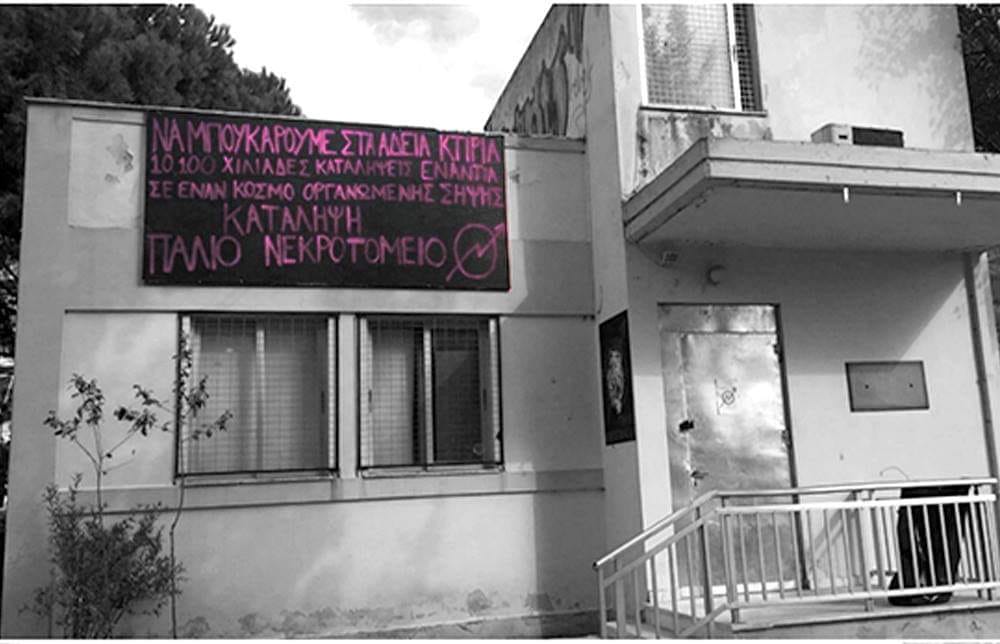 ΝΑ ΜΠΟΥΚΑΡΟΥΜΕ ΣΤΑ ΑΔΕΙΑ ΚΤΙΡΙΑ
10 100 ΧΙΛΙΑΔΕΣ ΚΑΤΑΛΗΨΕΙΣ ΕΝΑΝΤΙΑ
ΣΕ ΕΝΑΝ ΚΟΣΜΟ ΟΡΓΑΝΩΜΕΝΗΣ ΣΗΨΗΣ
ΚΑΤΑΛΗΨΗ
ΠΑΛΙΟ ΝΕΚΡΟΤΟΜΕΙΟ